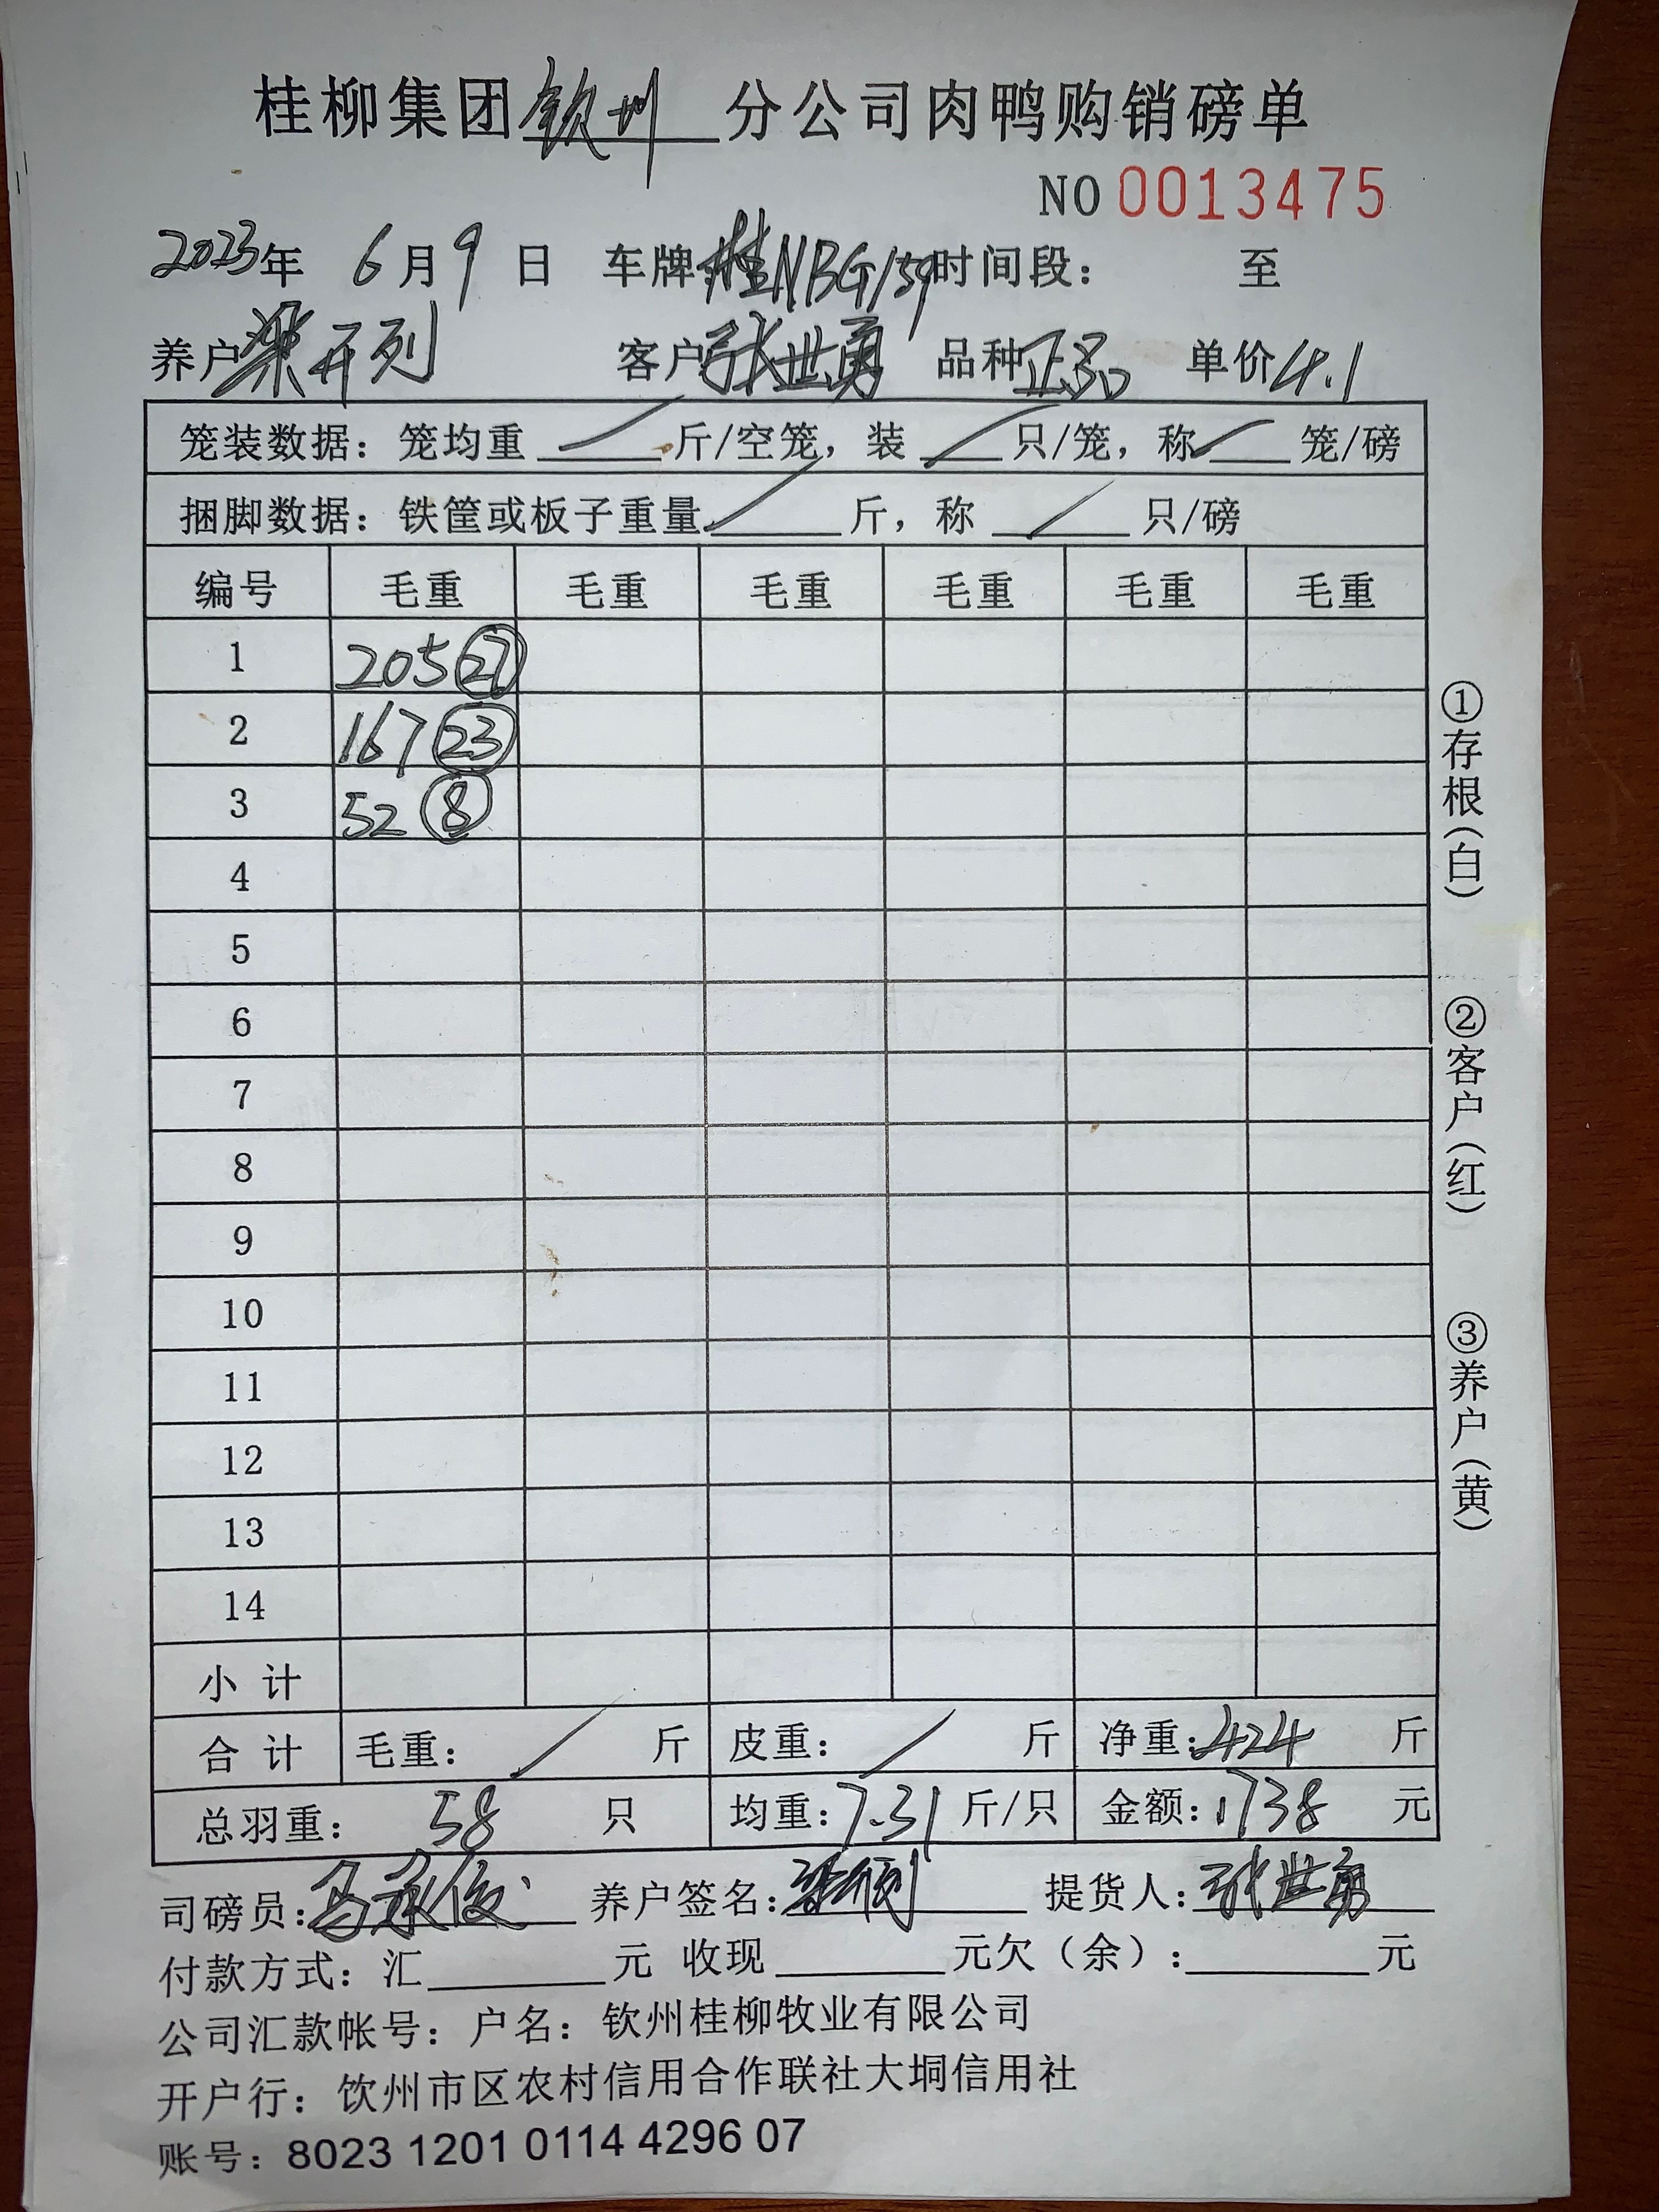 桂柳集团钦州分公司肉鸭购销磅单
NO 0013475
2023年 6月9日 车牌:桂NBG159 时间段: 至
养户梁开列 客户张世勇 品种正品 单价4.1
笼装数据:笼均重 / 斤/空笼,装 / 只/笼,称 / 笼/磅
捆脚数据:铁筐或板子重量 / 斤,称 / 只/磅
编号 毛重 毛重 毛重 毛重 毛重 毛重
1 205 27
2 167 23
3 52 8
4
5
6
7
8
9
10
11
12
13
14
小计
合计 毛重: / 斤 皮重: / 斤 净重:424 斤
总羽重: 58 只 均重:7.31 斤/只 金额:1738 元
司磅员:马承俊 养户签名:梁开列 提货人:张世勇
付款方式:汇 元 收现 元欠(余): 元
公司汇款帐号:户名:钦州桂柳牧业有限公司
开户行:钦州市区农村信用合作联社大垌信用社
账号:8023 1201 0114 4296 07
①存根(白)
②客户(红)
③养户(黄)